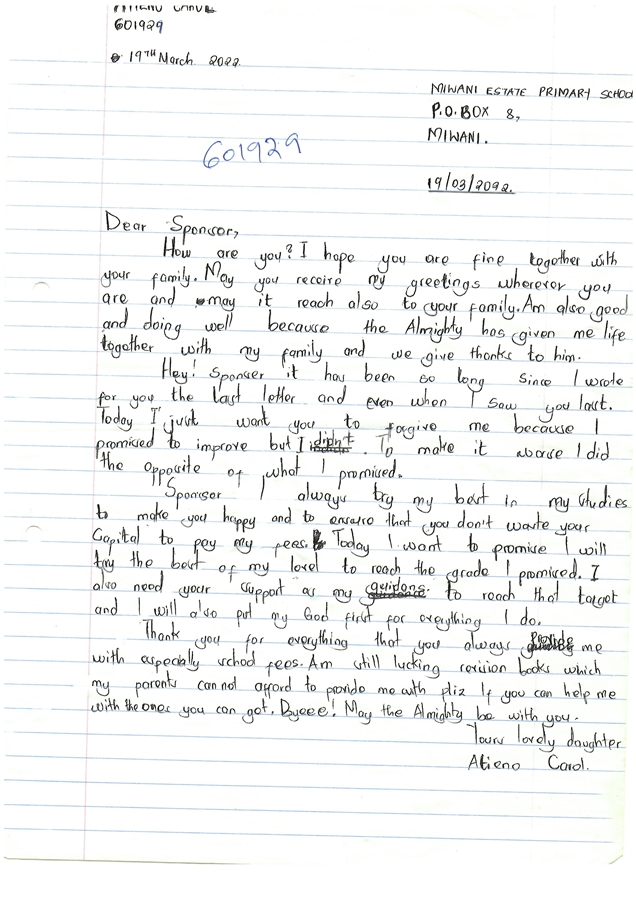 ATIENO CAROL
601929
19TH March 2022.
MIWANI ESTATE PRIMARY SCHOO
P.O.BOX 8,
MIWANI.
601929
19/03/2022.
Dear Sponsor,
How are you? I hope you are fine together with
your family. May you receive my greetings wherever you
are and may it reach also to your family. Am also good
and doing well because the Almighty has given me life
together with my family and we give thanks to him.
Hey! Sponsor it has been so long since I wrote
for you the last letter and even when I saw you last.
Today I just want you to forgive me because I
promised to improve but I didn't. To make it worse I did
the opposite of what I promised.
Sponsor I always try my best in my studies
to make you happy and to ensure that you don't waste your
Capital to pay my fees. Today I want to promise I will
try the best of my level to reach the grade I promised. I
also need your support as my guidance to reach that target
and I will also put my God first for everything I do.
Thank you for everything that you always provide me
with especially school fees. Am still lucking revision books which
my parents can not afford to provide me with pliz If you can help me
with the ones you can get. Byeee! May the Almighty be with you.
Yours lovely daughter
Atieno Carol.